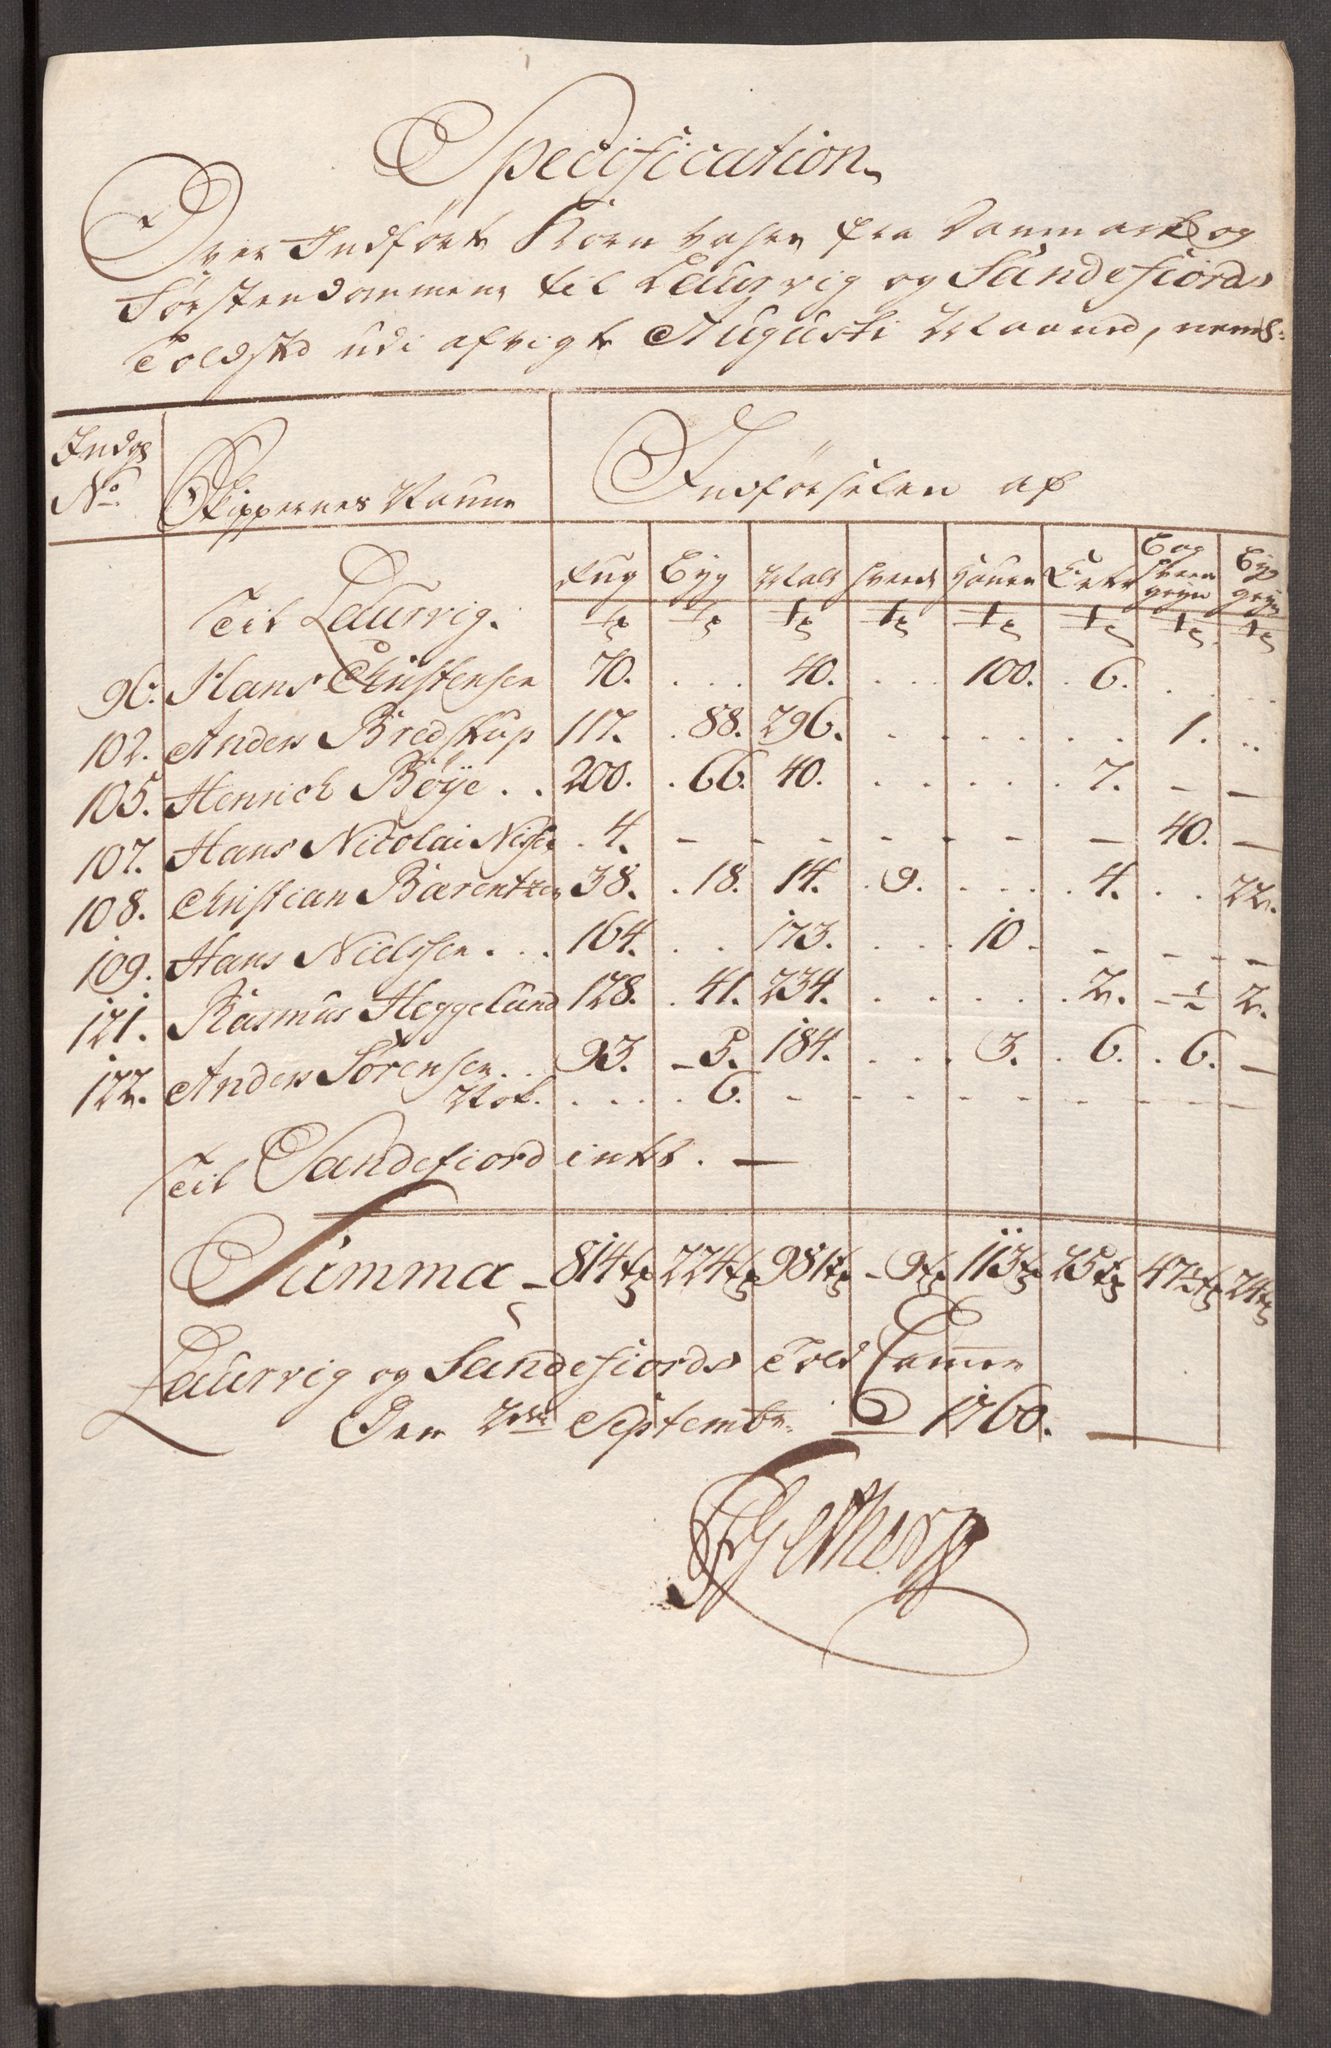 Specification
Over Indførte Korn Vahre fra Danmark og
Førstendommene til Laurvig og Sandefiords
Toldsted udi afvigte Augusti Maaned, neml:
Indg No. Skippernes Nafne Indførselen af
Til Laurvig. Rug Byg Malt Hvede Hauer Erter Boghvede gryn Byg gryn
Tr Tr Tr Tr Tr Tr Tr Tr
96. Hans Christensen 70. . . . 40. . . . 100. . 6. . . . .
102. Anders Bredstrup 117. . 88. 296. . . . . . . . 1. . .
105. Henrich Bøye . . 200. . 66. 40. . . . . . . 7. – –
107. Hans Nicolai Nissen . 4. – – – – – – – – 40. –
108. Christian Bærentzen 38. . 18. 14. . 9. . . . . 4. . . 22.
109. Hans Nielssen . . . 164. . . 173. . . . 10. – – – – –
121. Rasmus Heggelund 128. . 41. 234. . . . . . . 2. – ½ 2.
122. Anders Sørensen . . 93. – 5. 184. . . . 3. . 6. . 6. –
Nok. . . . . 6. – – – – – – – – –
Til Sandefiord intet. —
Summa – 814 Tr 224 Tr 981 Tr – 9 Tr 113 Tr 25 Tr 47½ Tr 24 Tr
Laurvig og Sandefiords Told Camer
Den 2den Septembr. 1760. —